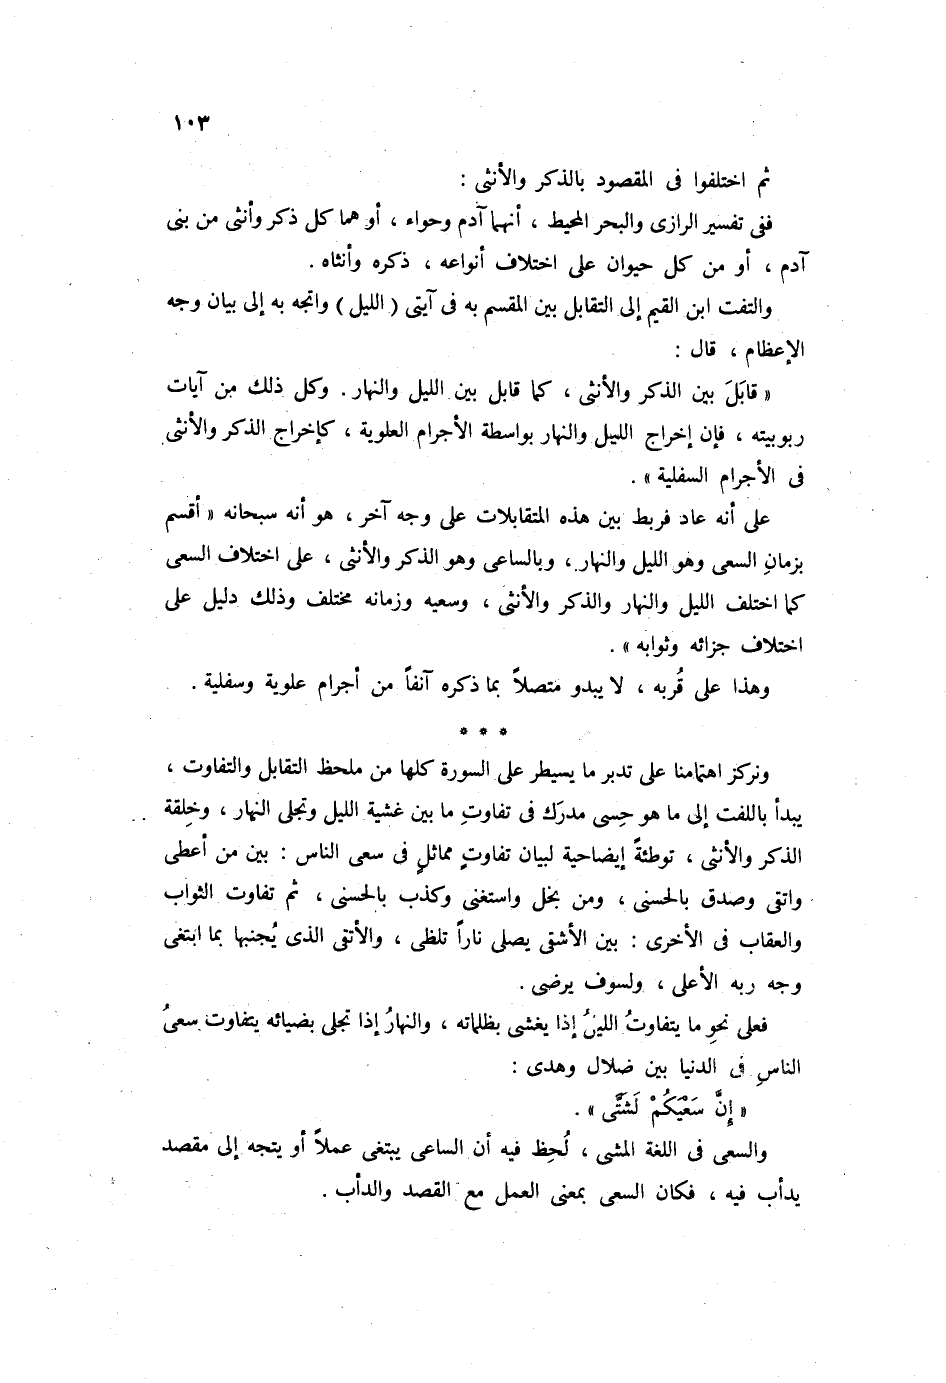 ١٠٣
ثم اختلفوا فى المقصود بالذكر والأنثى :
ففى تفسير الرازى والبحر المحيط ، أنهما آدم وحواء ، أو هما كل ذكر وأنثى من بنى
آدم ، أو من كل حيوان على اختلاف أنواعه ، ذكره وأنثاه .
والتفت ابن القيم إلى التقابل بين المقسم به فى آيتى ( الليل ) واتجه به إلى بيان وجه
الإعظام ، قال :
« قابَلَ بين الذكر والأنثى ، كما قابل بين الليل والنهار . وكل ذلك من آيات
ربوبيته ، فإن إخراج الليل والنهار بواسطة الأجرام العلوية ، كإخراج الذكر والأنثى
فى الأجرام السفلية » .
على أنه عاد فربط بين هذه المتقابلات على وجه آخر ، هو أنه سبحانه « أقسم
بزمانِ السعى وهو الليل والنهار ، وبالساعى وهو الذكر والأنثى ، على اختلاف السعى
كما اختلف الليل والنهار والذكر والأنثى ، وسعيه وزمانه مختلف وذلك دليل على
اختلاف جزائه وثوابه » .
وهذا على قُربه ، لا يبدو متصلاً بما ذكره آنفاً من أجرام علوية وسفلية .
* * *
ونركز اهتمامنا على تدبر ما يسيطر على السورة كلها من ملحظ التقابل والتفاوت ،
يبدأ باللفت إلى ما هو حِسى مدرَك فى تفاوتِ ما بين غشية الليل وتجلى النهار ، وخِلقة
الذكر والأنثى ، توطئةً إيضاحية لبيان تفاوتٍ مماثلٍ فى سعى الناس : بين من أعطى
واتقى وصدق بالحسنى ، ومن بخل واستغنى وكذب بالحسنى ، ثم تفاوت الثواب
والعقاب فى الأخرى : بين الأشقى يصلى ناراً تلظى ، والأتقى الذى يُجنبها بما ابتغى
وجه ربه الأعلى ، ولسوف يرضى .
فعلى نحوِ ما يتفاوتُ الليلُ إذا يغشى بظلماته ، والنهارُ إذا تجلى بضيائه يتفاوت سعىُ
الناسِ فى الدنيا بين ضلال وهدى :
« إِنَّ سَعْيَكُمْ لَشَتَّى » .
والسعى فى اللغة المشى ، لُحِظ فيه أن الساعى يبتغى عملاً أو يتجه إلى مقصد
يدأب فيه ، فكان السعى بمعنى العمل مع القصد والدأب .